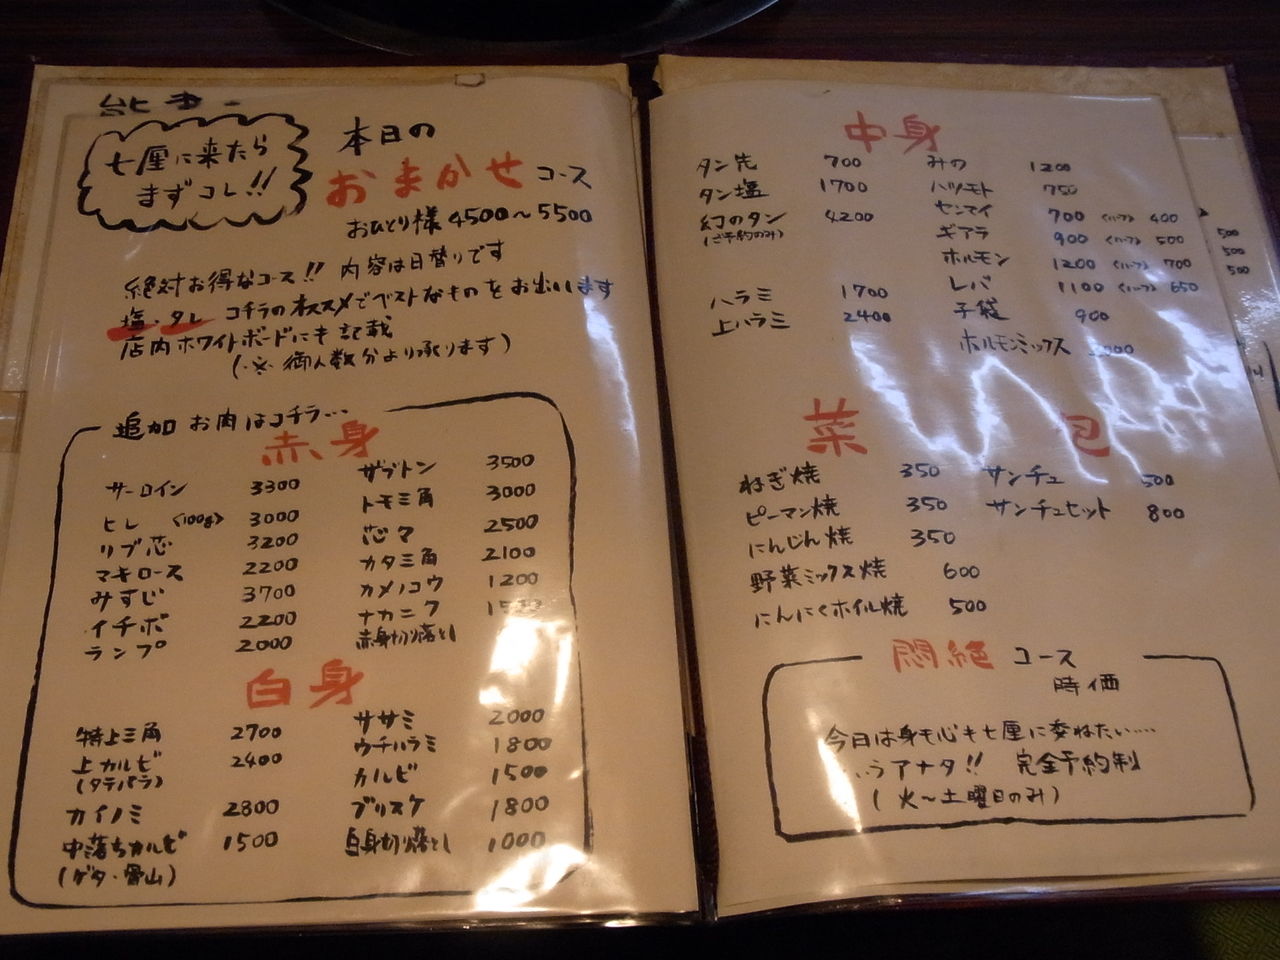 七厘に来たら
まずコレ!!
本日の
おまかせ コース
おひとり様 4500～5500
絶対お得なコース!! 内容は日替りです
塩・タレ コチラのオススメでベストなものをお出しします
店内ホワイトボードにも記載
(※御人数分より承ります)
追加 お肉はコチラ…
赤身
サーロイン 3300
ヒレ <100g> 3000
リブ芯 3200
マキロース 2200
みすじ 3700
イチボ 2200
ランプ 2000
ザブトン 3500
トモ三角 3000
芯々 2500
カタ三角 2100
カメノコウ 1200
ナカニク
赤身切り落とし
白身
特上三角 2700
上カルビ 2400
(タテバラ)
カイノミ 2800
中落ちカルビ 1500
(ゲタ・骨山)
ササミ 2000
ウチハラミ 1800
カルビ 1500
ブリスケ 1800
白身切り落とし 1000
中身
タン先 700
タン塩 1700
幻のタン 4200
(ご予約のみ)
ハラミ 1700
上ハラミ 2400
みの 1200
ハツモト 750
センマイ 700 <ハーフ> 400
ギアラ 900 <ハーフ> 500
ホルモン 1200 <ハーフ> 700
レバ 1100 <ハーフ> 650
子袋 900
ホルモンミックス
菜
ねぎ焼 350
ピーマン焼 350
にんじん焼 350
野菜ミックス焼 600
にんにくホイル焼 500
包
サンチュ 500
サンチュセット 800
悶絶 コース
時価
今日は身も心も七厘に委ねたい…
アナタ!! 完全予約制
(火～土曜日のみ)
500
500
500